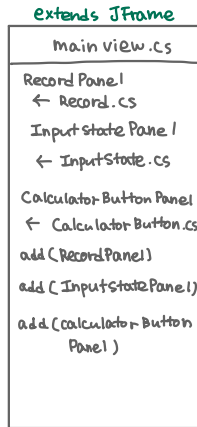 extends JFrame
main view.cs
Record Panel
← Record.cs
Input state Pane l
← InputState.cs
Calculator Button Panel
← Calculator Button.cs
add (RecordPanel)
add ( InputStatePanel)
add (calculator Button
Panel )